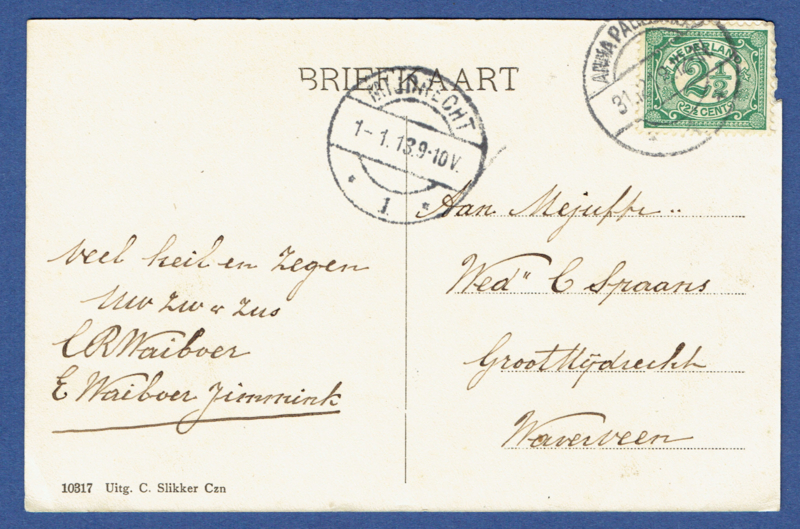 BRIEFKAART
ANNA PAU
31.
NEDERLAND
2½
2½ CENT
MIJDRECHT
1-1.13.9-10V.
1
Aan Mejuffr..
Wed" C Spaans
Groot Mijdrecht
Waverveen
Veel heil en Zegen
Uw Zw & Zus
C R Waiboer
E Waiboer Jimmink
10317 Uitg. C. Slikker Czn